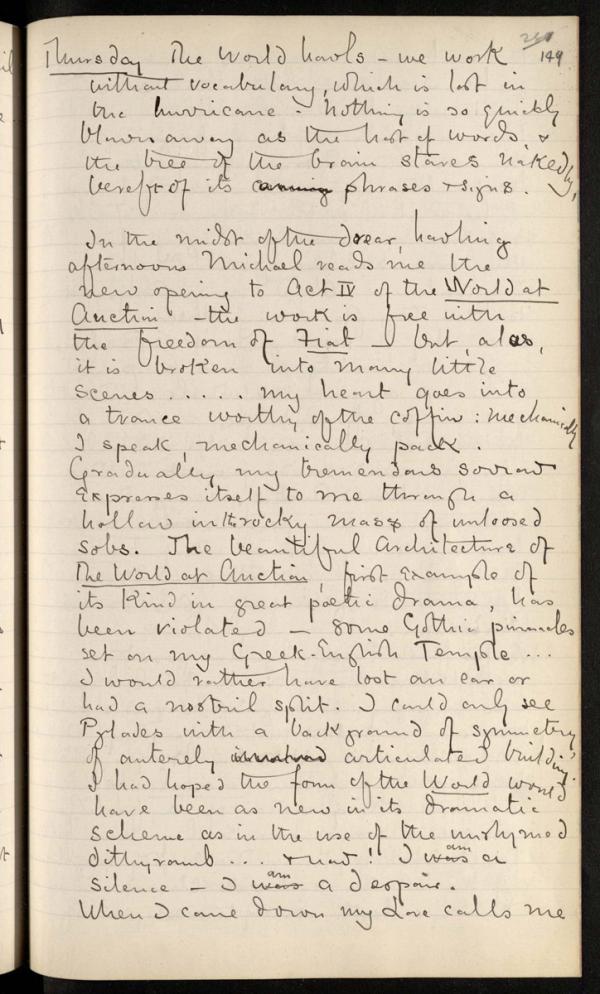 249
Thursday The World howls – we work 149
without vocabulary, which is lost in
the hurricane. Nothing is so quickly
blown away as the host of words, &
the tree of the brain starves nakedly,
bereft of its phrases & signs.
In the midst of the drear, howling
afternoon Michael reads me the
new opening to Act IV of the World at
Auction – the work is free with
the freedom of Fiat – but, alas,
it is broken into many little
scenes ..... my heart goes into
a trance worthy of the coffin: mechanically
I speak, mechanically pack.
Gradually my tremendous sorrow
expresses itself to me through a
hollow in the rocky mass of unloosed
sobs. The beautiful Architecture of
The World at Auction, first example of
its kind in great poetic drama, has
been violated – some Gothic pinnacles
set on my Greek-English Temple ...
I would rather have lost an ear or
had a nostril split. I could only see
Pylades with a background of symmetry
of articulated building.
I had hoped the form of the World would
have been as new in its dramatic
scheme as in the use of the unrhymed
dithyramb ... & now! I was am a
silence – I was am a despair.
When I come down my Love calls me